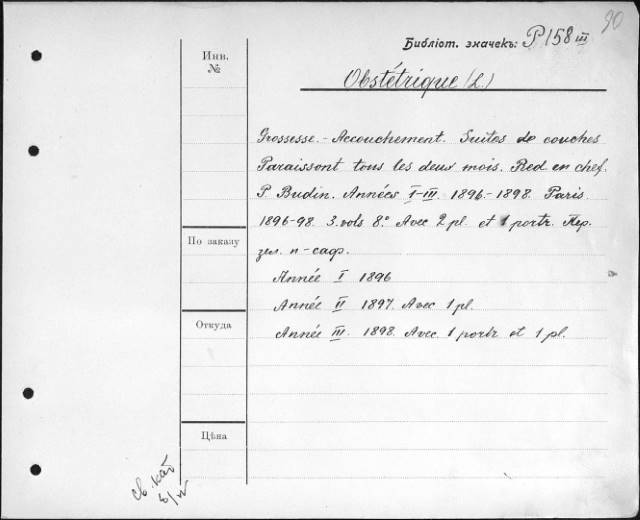 90
Библіот. значекъ: P158 III
Инв.
№
Obstétrique (L.)
Grossesse. - Accouchement. Suites de couches
Paraissant tous les deux mois. Red. en chef.
P. Budin. Années I-III. 1896.-1898. Paris.
1896-98. 3. vols 8.° Avec 2 pl. et 1 portr. Пер.
зел. п-саф.
По заказу
Année I 1896
Année II 1897. Avec 1 pl.
Откуда
Année III. 1898. Avec 1 portr et 1 pl.
Цѣна
св. каб